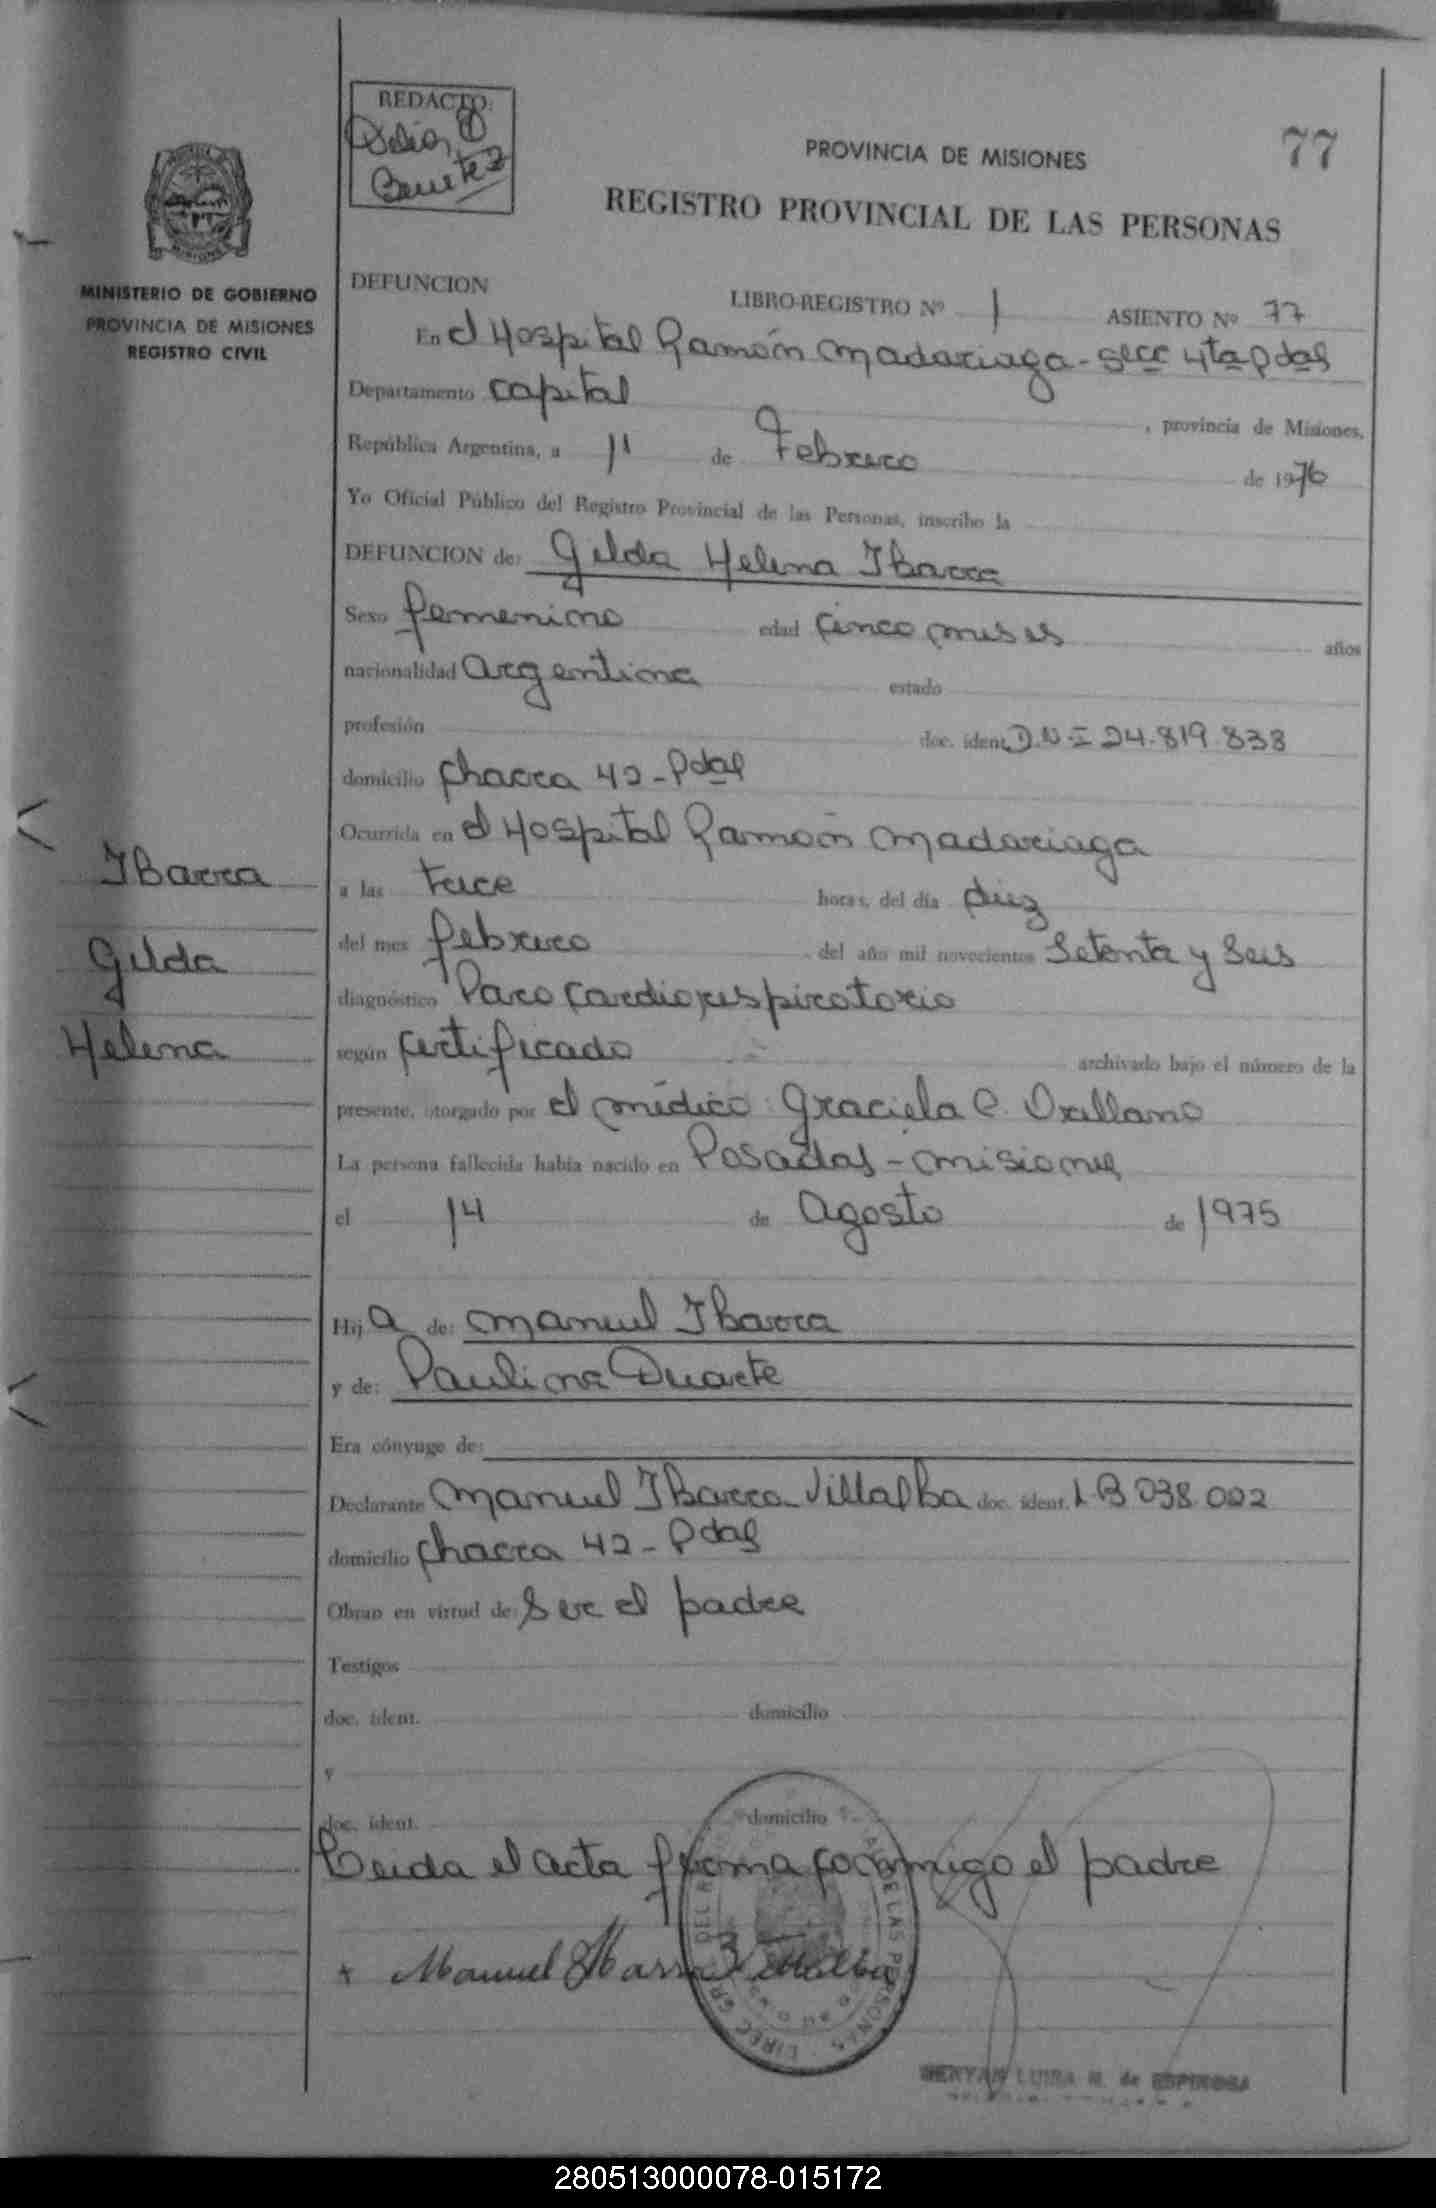 REDACTO:
Benitez
PROVINCIA DE MISIONES
77
REGISTRO PROVINCIAL DE LAS PERSONAS
MINISTERIO DE GOBIERNO
PROVINCIA DE MISIONES
REGISTRO CIVIL
DEFUNCION
LIBRO-REGISTRO Nº 1 ASIENTO Nº 77
En el Hospital Ramón Madariaga - Secc 4ta Pdas
Departamento Capital, provincia de Misiones,
República Argentina, a 11 de Febrero de 1976
Yo Oficial Público del Registro Provincial de las Personas, inscribo la
DEFUNCION de: Gilda Helena Ibarra
Sexo femenino edad cinco meses años
nacionalidad argentina estado
profesión doc. ident. D.N.I 24.819.838
domicilio Chacra 42 - Pdas
Ocurrida en el Hospital Ramón Madariaga
Ibarra
a las trece horas, del día diez
Gilda
del mes febrero del año mil novecientos Setenta y Seis
diagnóstico Paro Cardiorespiratorio
Helena
según certificado archivado bajo el número de la
presente, otorgado por el médico: Graciela C. Orellano
La persona fallecida había nacido en Posadas - Misiones
el 14 de Agosto de 1975
Hij a de: Manuel Ibarra
y de: Paulina Duarte
Era cónyuge de:
Declarante Manuel Ibarra Villalba doc. ident. L.B 038.002
domicilio Chacra 42 - Pdas
Obran en virtud de: Ser el padre
Testigos
doc. ident. domicilio
y
doc. ident. domicilio
Leida el acta firma conmigo el padre
x Manuel Ibarra Villalba
LUISA M. de ESPINOSA
280513000078-015172